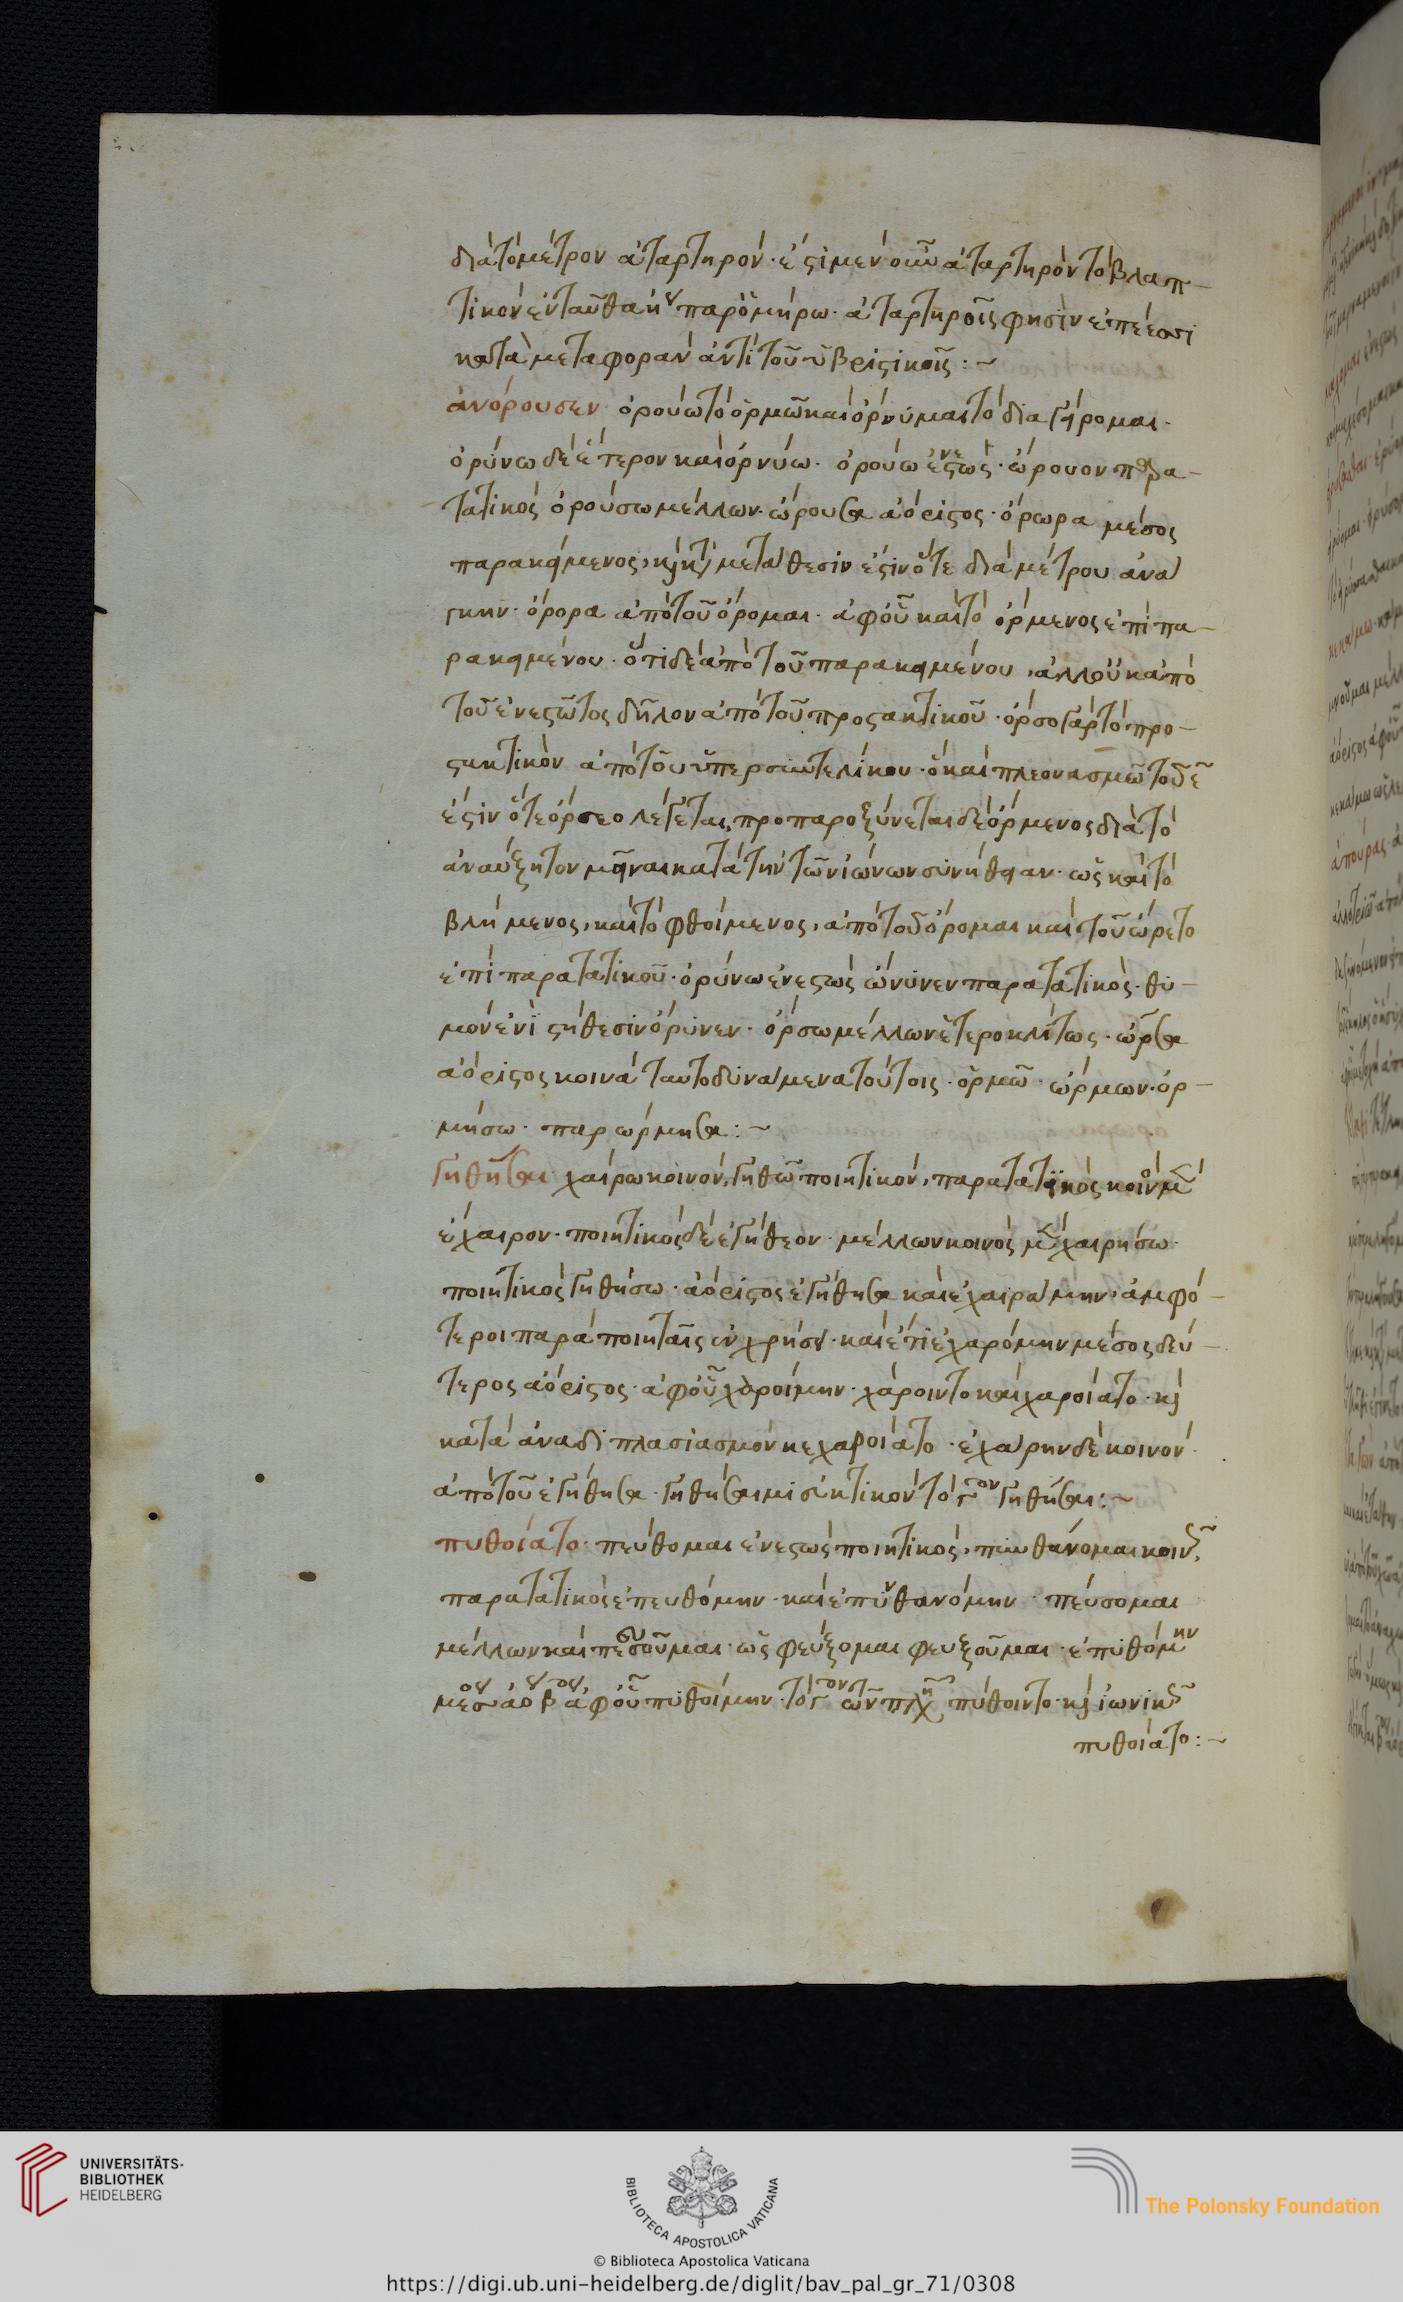 διὰ τὸ μέτρον ἀταρτηρόν· ἐστὶ μὲν οὖν ἀταρτηρὸν τὸ βλαπ-
τικὸν ἐνταῦθα ἢ παρ' ὁμήρω· ἀταρτηροῖς φησὶν ἐπέεσσι
κατὰ μεταφορὰν ἀντὶ τοῦ ὑβριστικοῖς:~
ἀνόρουσεν· ὀρούω τὸ ὁρμῶ καὶ ὀρνύμαι τὸ διαγείρομαι·
ὀρύνω δὲ ἕτερον καὶ ὀρνύω· ὀρούω ἐνεστώς· ὤρουον παρα-
τατικὸς ὀρούσω μέλλων· ὤρουσα ἀόριστος· ὄρωρα μέσος
παρακείμενος, καὶ κατὰ μετάθεσιν ἐστὶν ὅτε διὰ μέτρου ἀνά
γκην· ὄρορα ἀπὸ τοῦ ὄρομαι· ἀφ' οὗ καὶ τὸ ὄρμενος ἐπὶ πα-
ρακειμένου· ὅτι δὲ ἀπὸ τοῦ παρακειμένου, ἀλλ' οὐκ ἀπὸ
τοῦ ἐνεστῶτος δῆλον ἀπὸ τοῦ προστακτικοῦ· ὄρσο γὰρ τὸ προ-
στακτικὸν ἀπὸ τοῦ ὑπερσυντελίκου· ὃ καὶ πλεονασμῶ τοῦ ε
ἐστὶν ὅτε ὄρσεο λέγεται, προπαροξύνεται δὲ ὄρμενος διὰ τὸ
ἀναύξητον μεῖναι κατὰ τὴν τῶν ἰώνων συνήθειαν· ὡς καὶ τὸ
βλήμενος, καὶ τὸ φθοίμενος, ἀπὸ τοῦ ὄρομαι καὶ τοῦ ὤρετο
ἐπὶ παρατατικοῦ· ὀρύνω ἐνεστὼς ὤνυνεν παρατατικὸς· θυ-
μὸν ἐνὶ στήθεσιν ὄρυνεν· ὄρσω μέλλων ἑτεροκλίτως· ὦρσα
ἀόριστος κοινὰ ταυτοδύναμενα τούτοις· ὁρμῶ· ὥρμων· ὁρ-
μήσω· παρώρμησα:~
γηθῆσαι χαίρω κοινόν, γηθῶ ποιητικόν, παρατατικὸς κοινὸς μὲν
ἔχαιρον· ποιητικὸς δὲ ἐγήθεον· μέλλων κοινὸς μὲν χαιρήσω·
ποιητικὸς γηθήσω· ἀόριστος ἐγήθησα καὶ ἐχαιράμην, ἀμφό-
τεροι παρὰ ποιηταῖς ἐν χρήσει· καὶ ἔτι ἐχαρόμην μέσος δεύ-
τερος ἀόριστος· ἀφ' οὗ χαροίμην· χάροιντο καὶ χαροίατο· καὶ
κατὰ ἀναδιπλασιασμὸν κεχαροίατο· ἐχάρην δὲ κοινόν·
ἀπὸ τοῦ ἐγήθησα γηθήσαιμι εὐκτικὸν τὸ γον γηθήσαι:~
πυθοίατο· πεύθομαι ἐνεστὼς ποιητικός, πυνθάνομαι κοινῶς,
παρατατικὸς ἐπευθόμην· καὶ ἐπυνθανόμην· πεύσομαι
μέλλων καὶ πευσοῦμαι· ὡς φεύξομαι φευξοῦμαι· ἐπυθόμην
μέσου ἀορ β ἀφ' οὗ πυθοίμην· τὸ γον τῶν πλη πύθοιντο· καὶ ἰωνικῶς
πυθοίατο:~
UNIVERSITÄTS-
BIBLIOTHEK
HEIDELBERG
BIBLIOTECA APOSTOLICA VATICANA
The Polonsky Foundation
© Biblioteca Apostolica Vaticana
https://digi.ub.uni-heidelberg.de/diglit/bav_pal_gr_71/0308